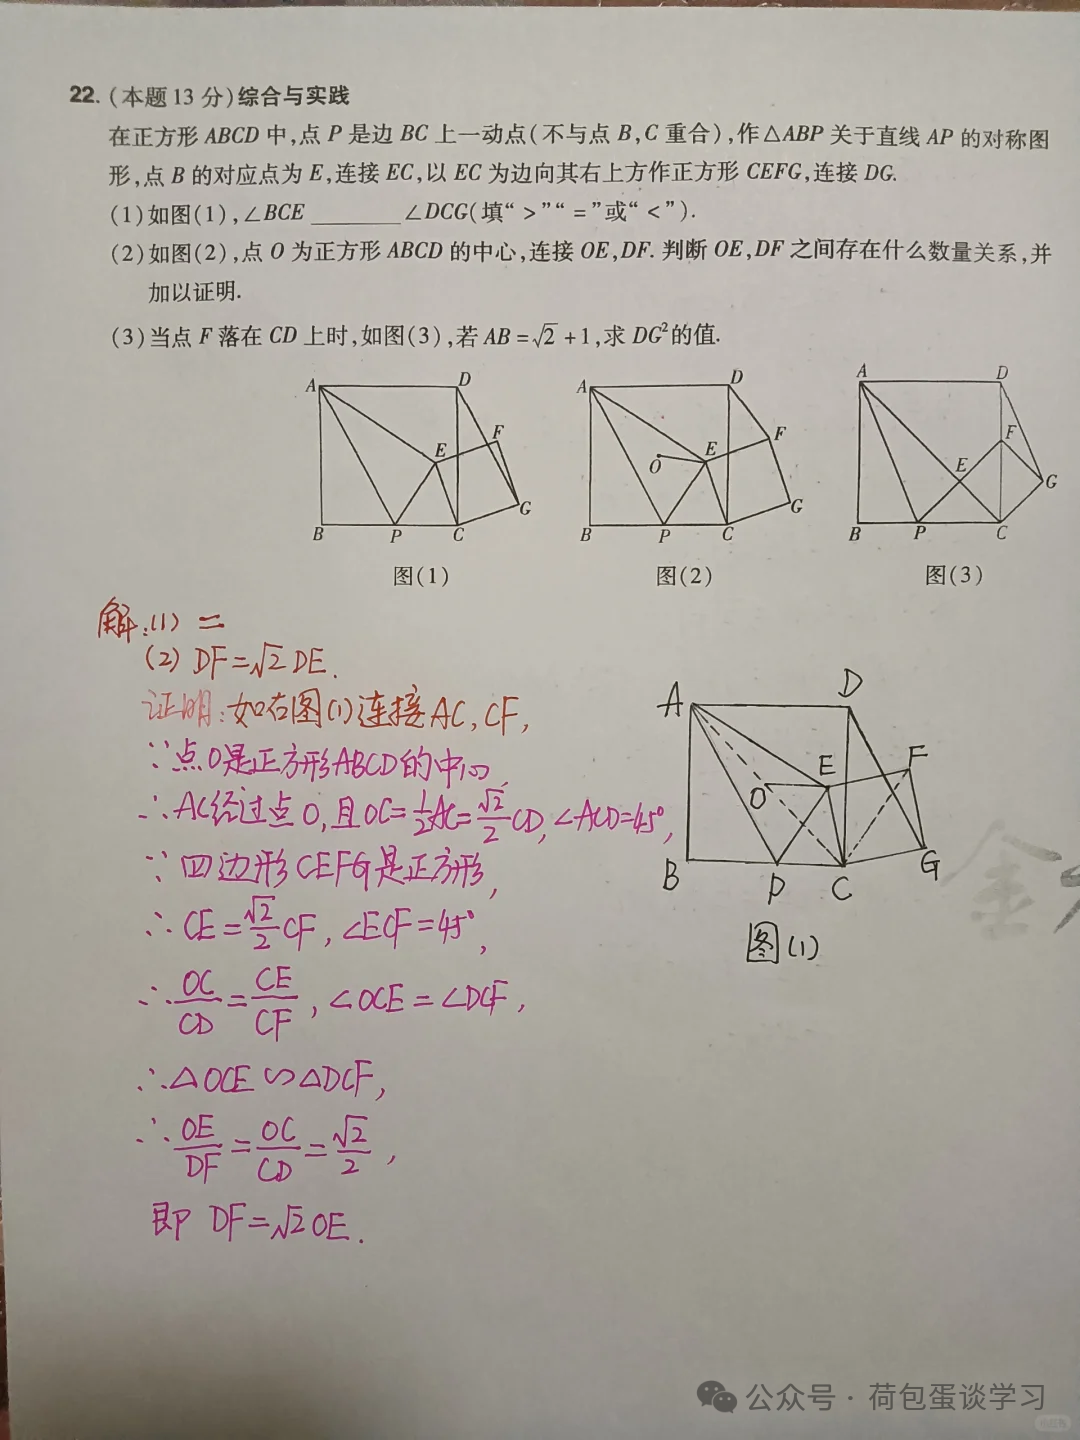 22. (本题13分)综合与实践
在正方形ABCD中,点P是边BC上一动点(不与点B,C重合),作△ABP关于直线AP的对称图
形,点B的对应点为E,连接EC,以EC为边向其右上方作正方形CEFG,连接DG.
(1)如图(1),∠BCE ________ ∠DCG(填“>”“=”或“<”).
(2)如图(2),点O为正方形ABCD的中心,连接OE,DF.判断OE,DF之间存在什么数量关系,并
加以证明.
(3)当点F落在CD上时,如图(3),若AB=√2+1,求DG²的值.
A D E F G B P C
图(1)
A D O E F G B P C
图(2)
A D F E G B P C
图(3)
解:(1) =
(2) DF=√2DE.
证明:如右图(1)连接AC,CF,
∵点O是正方形ABCD的中心,
∴AC经过点O,且OC=1/2AC=√2/2CD,∠ACD=45°,
∵四边形CEFG是正方形,
∴CE=√2/2CF,∠ECF=45°,
∴OC/CD=CE/CF,∠OCE=∠DCF,
∴△OCE∽△DCF,
∴OE/DF=OC/CD=√2/2,
即 DF=√2OE.
A D O E F G B P C
图(1)
公众号·荷包蛋谈学习